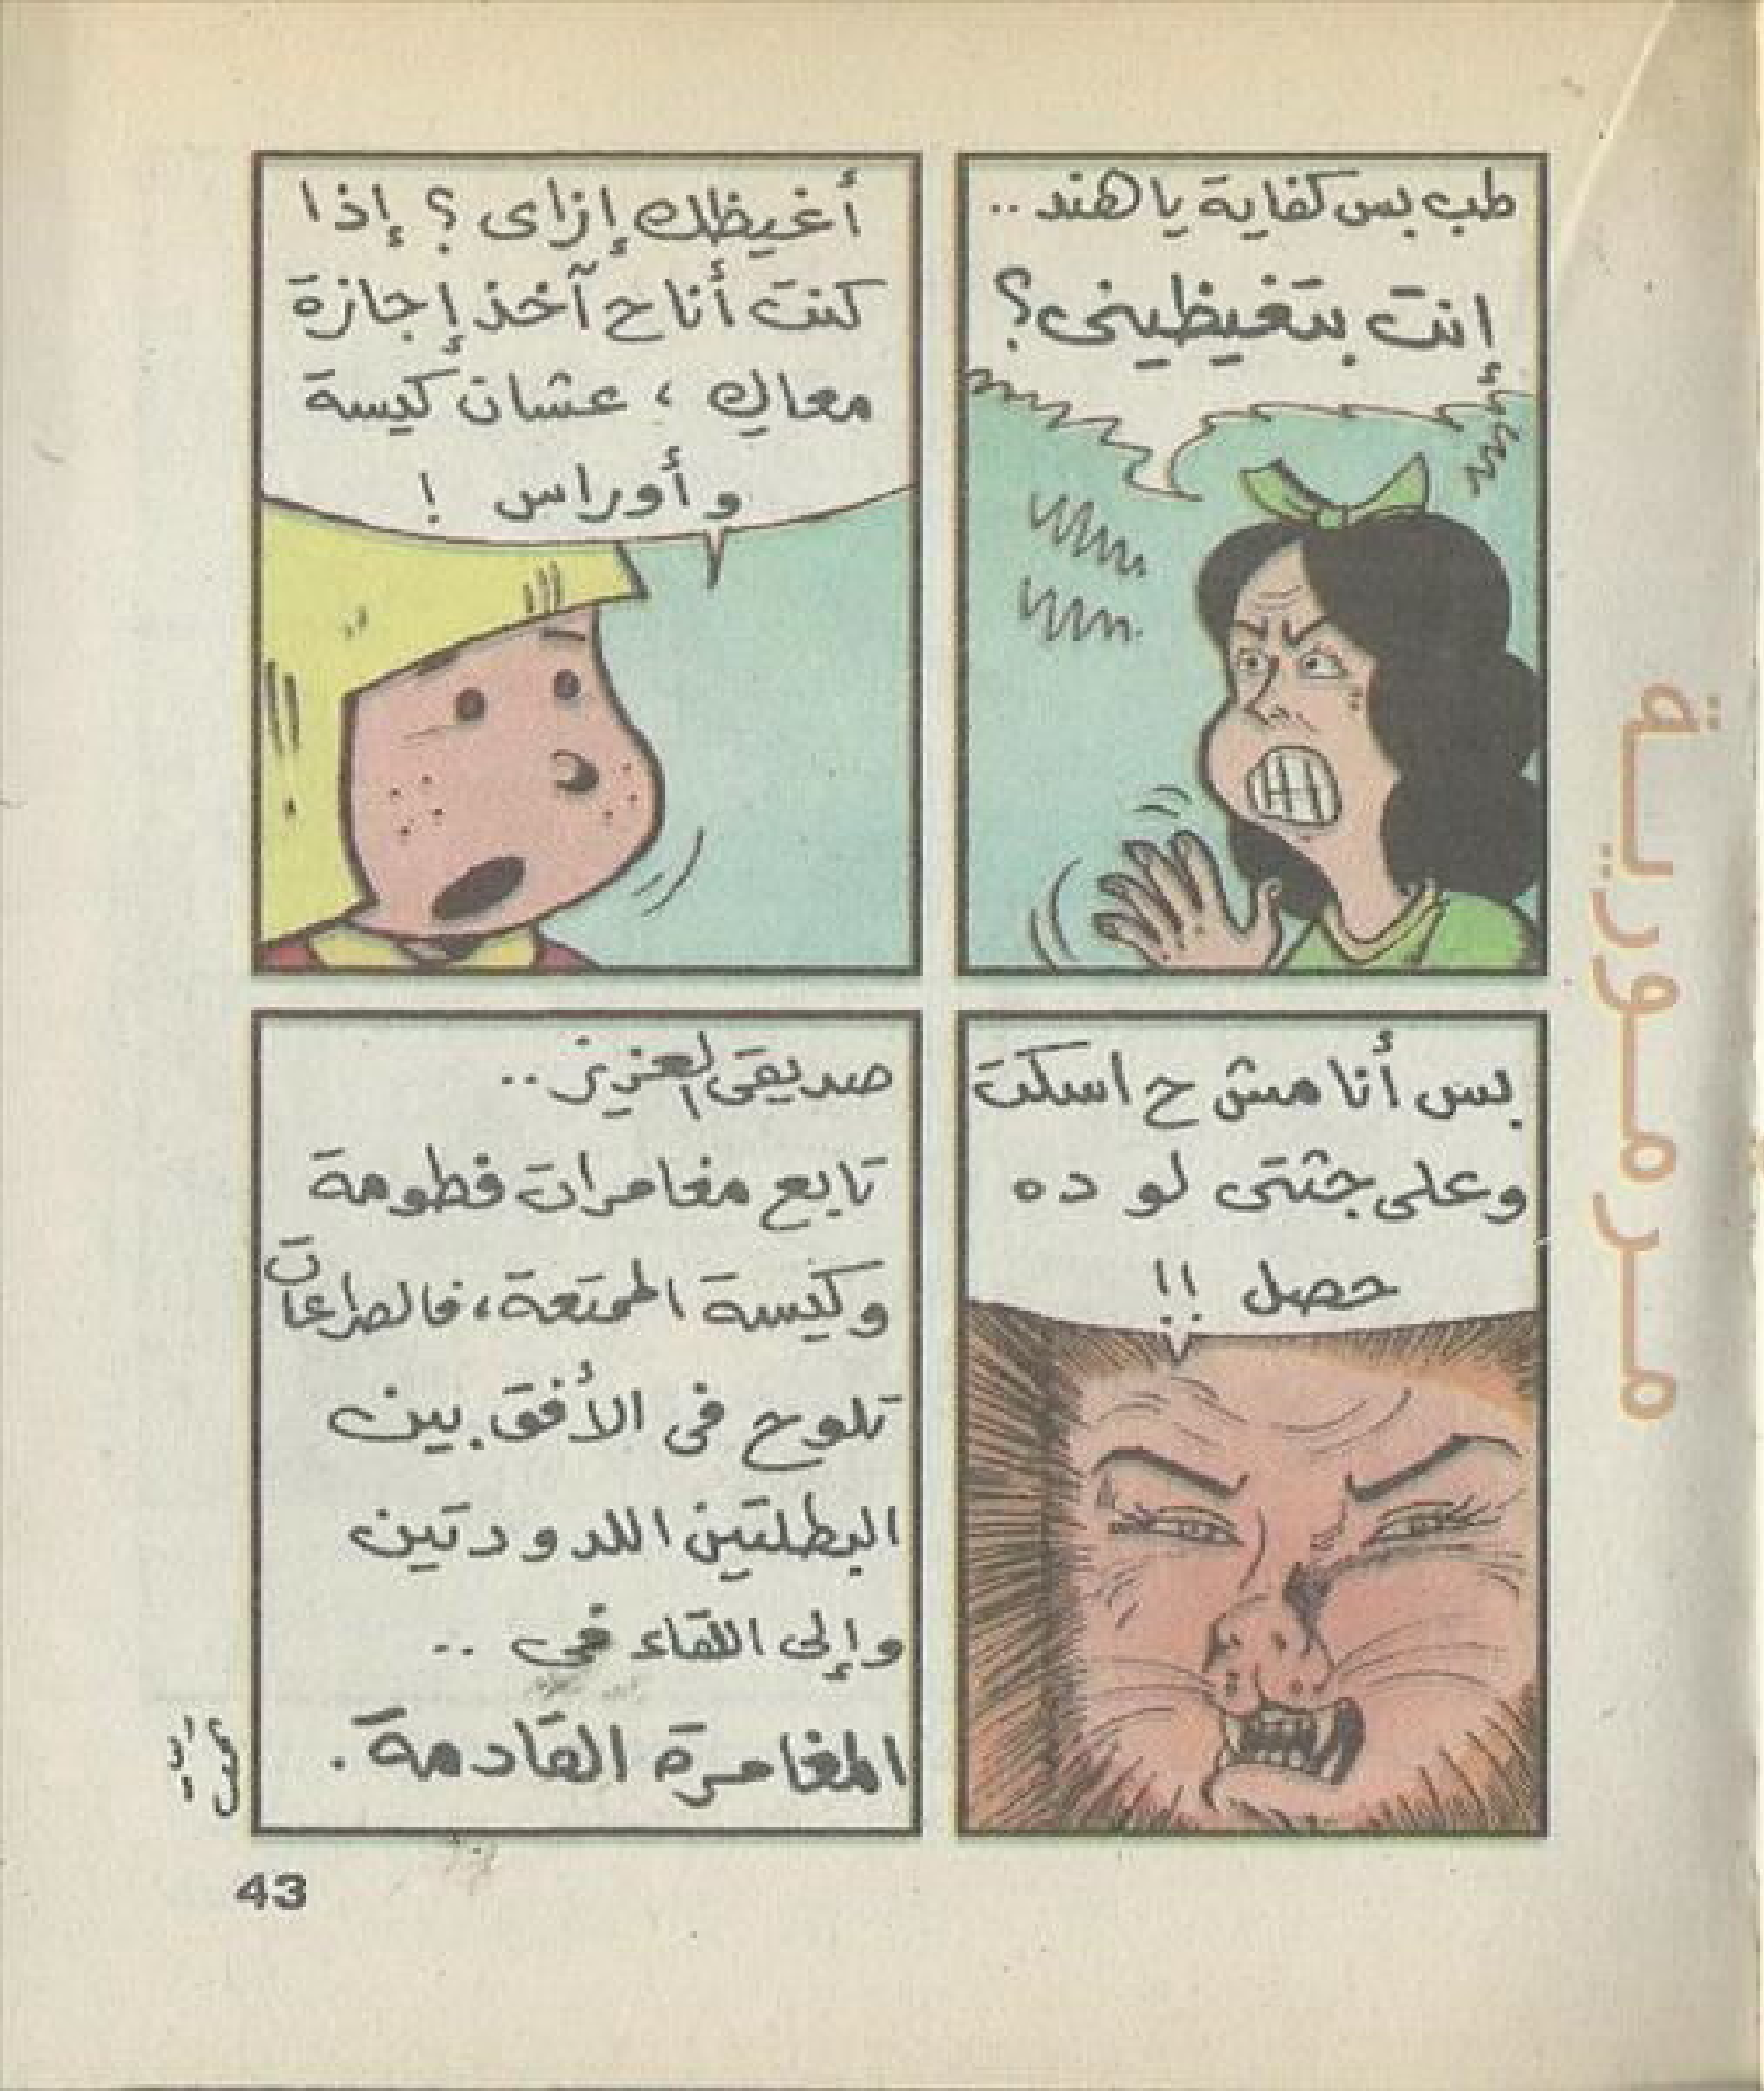 طب بس كفاية يا هند ..
إنت بتغيظيني؟
أغيظك إزاى ؟ إذا
كنت أنا ح آخذ إجازة
معاكِ ، عشان كيسة
و أوراس !
بس أنا مش ح اسكت
وعلى جثتى لو ده
حصل !!
صديقى العزيز ..
تابع مغامرات فطومة
وكيسة الممتعة ، فالصراعات
تلوح فى الأفق بين
البطلتين اللدودتين
وإلى اللقاء فى ..
المغامرة القادمة .
مرمورية
43